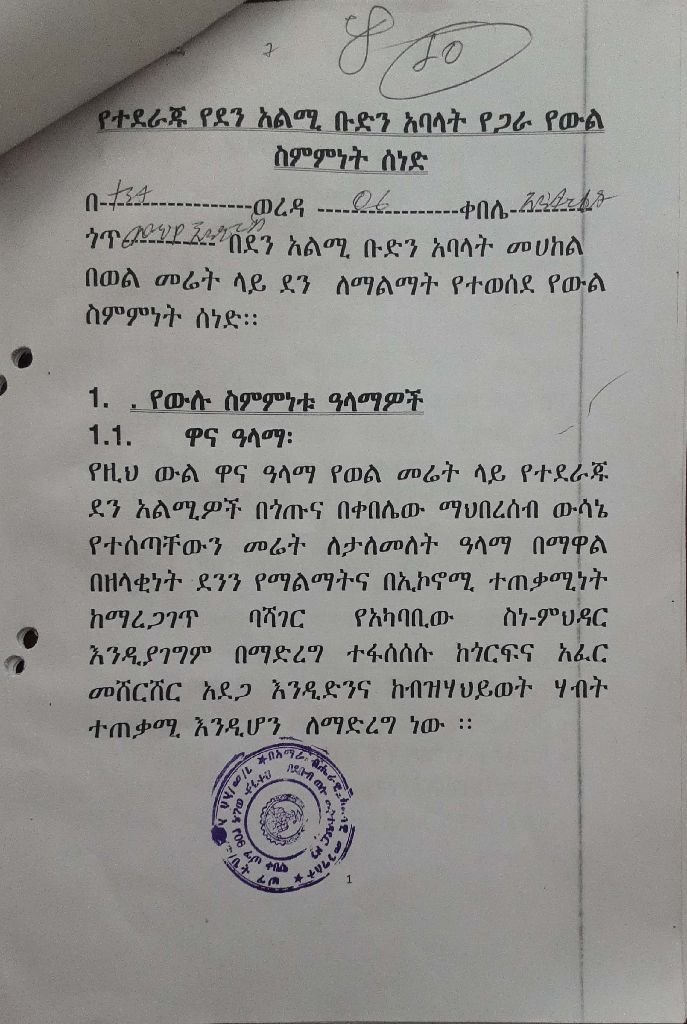 10
የተደራጁ የደን አልሚ ቡድን አባላት የጋራ የውል
ስምምነት ሰነድ
በ-----------------ወረዳ ----06----------ቀበሌ----------
ጎጥ---------- በደን አልሚ ቡድን አባላት መሀከል
በወል መሬት ላይ ደን ለማልማት የተወሰደ የውል
ስምምነት ሰነድ፡፡
1. . የውሉ ስምምነቱ ዓላማዎች
1.1. ዋና ዓላማ፡
የዚህ ውል ዋና ዓላማ የወል መሬት ላይ የተደራጁ
ደን አልሚዎች በጎጡና በቀበሌው ማህበረሰብ ውሳኔ
የተሰጣቸውን መሬት ለታለመለት ዓላማ በማዋል
በዘላቂነት ደንን የማልማትና በኢኮኖሚ ተጠቃሚነት
ከማረጋገጥ ባሻገር የአካባቢው ስነ-ምህዳር
እንዲያገግም በማድረግ ተፋሰሰሱ ከጎርፍና አፈር
መሸርሸር አደጋ እንዲድንና ከብዝሃህይወት ሃብት
ተጠቃሚ እንዲሆን ለማድረግ ነው ፡፡
1